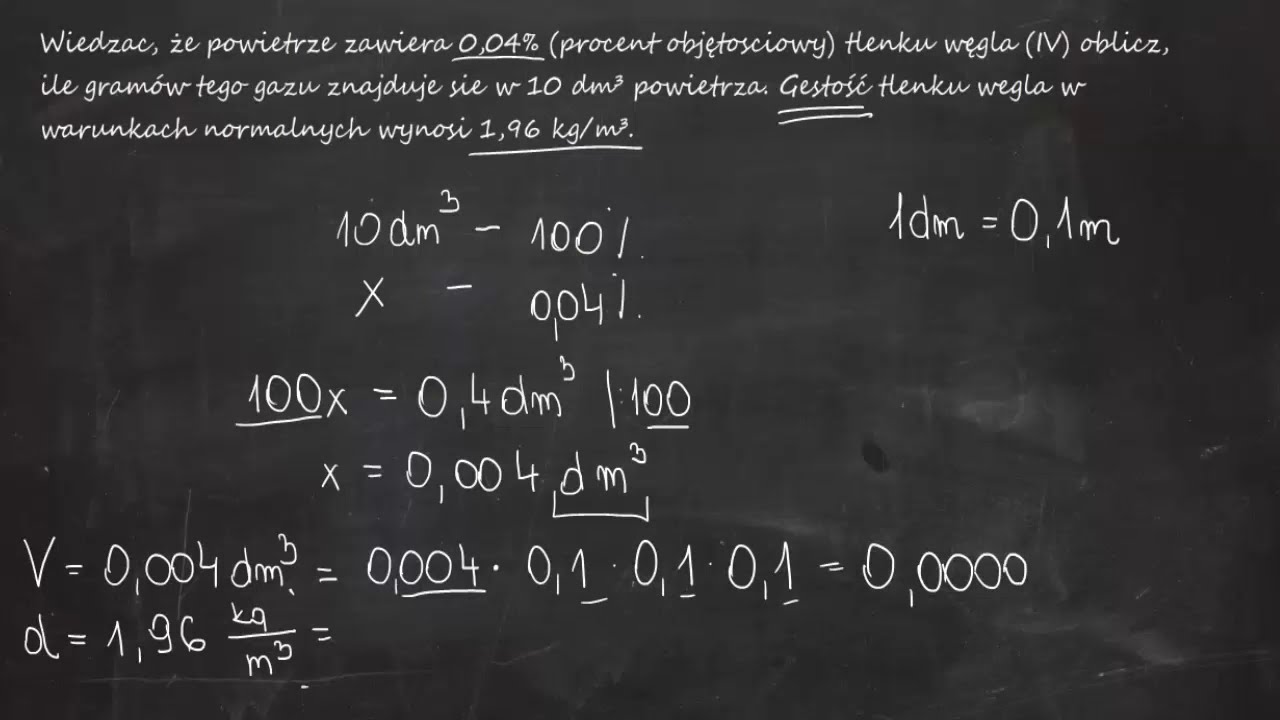 Wiedzac, że powietrze zawiera 0,04% (procent objętosciowy) tlenku węgla (IV) oblicz,
ile gramów tego gazu znajduje sie w 10 dm³ powietrza. Gestość tlenku wegla w
warunkach normalnych wynosi 1,96 kg/m³.
10 dm³ - 100%
1dm = 0,1m
x - 0,04%
100x = 0,4 dm³ |:100
x = 0,004 dm³
V = 0,004 dm³ = 0,004 · 0,1 · 0,1 · 0,1 = 0,0000
d = 1,96 kg/m³ =